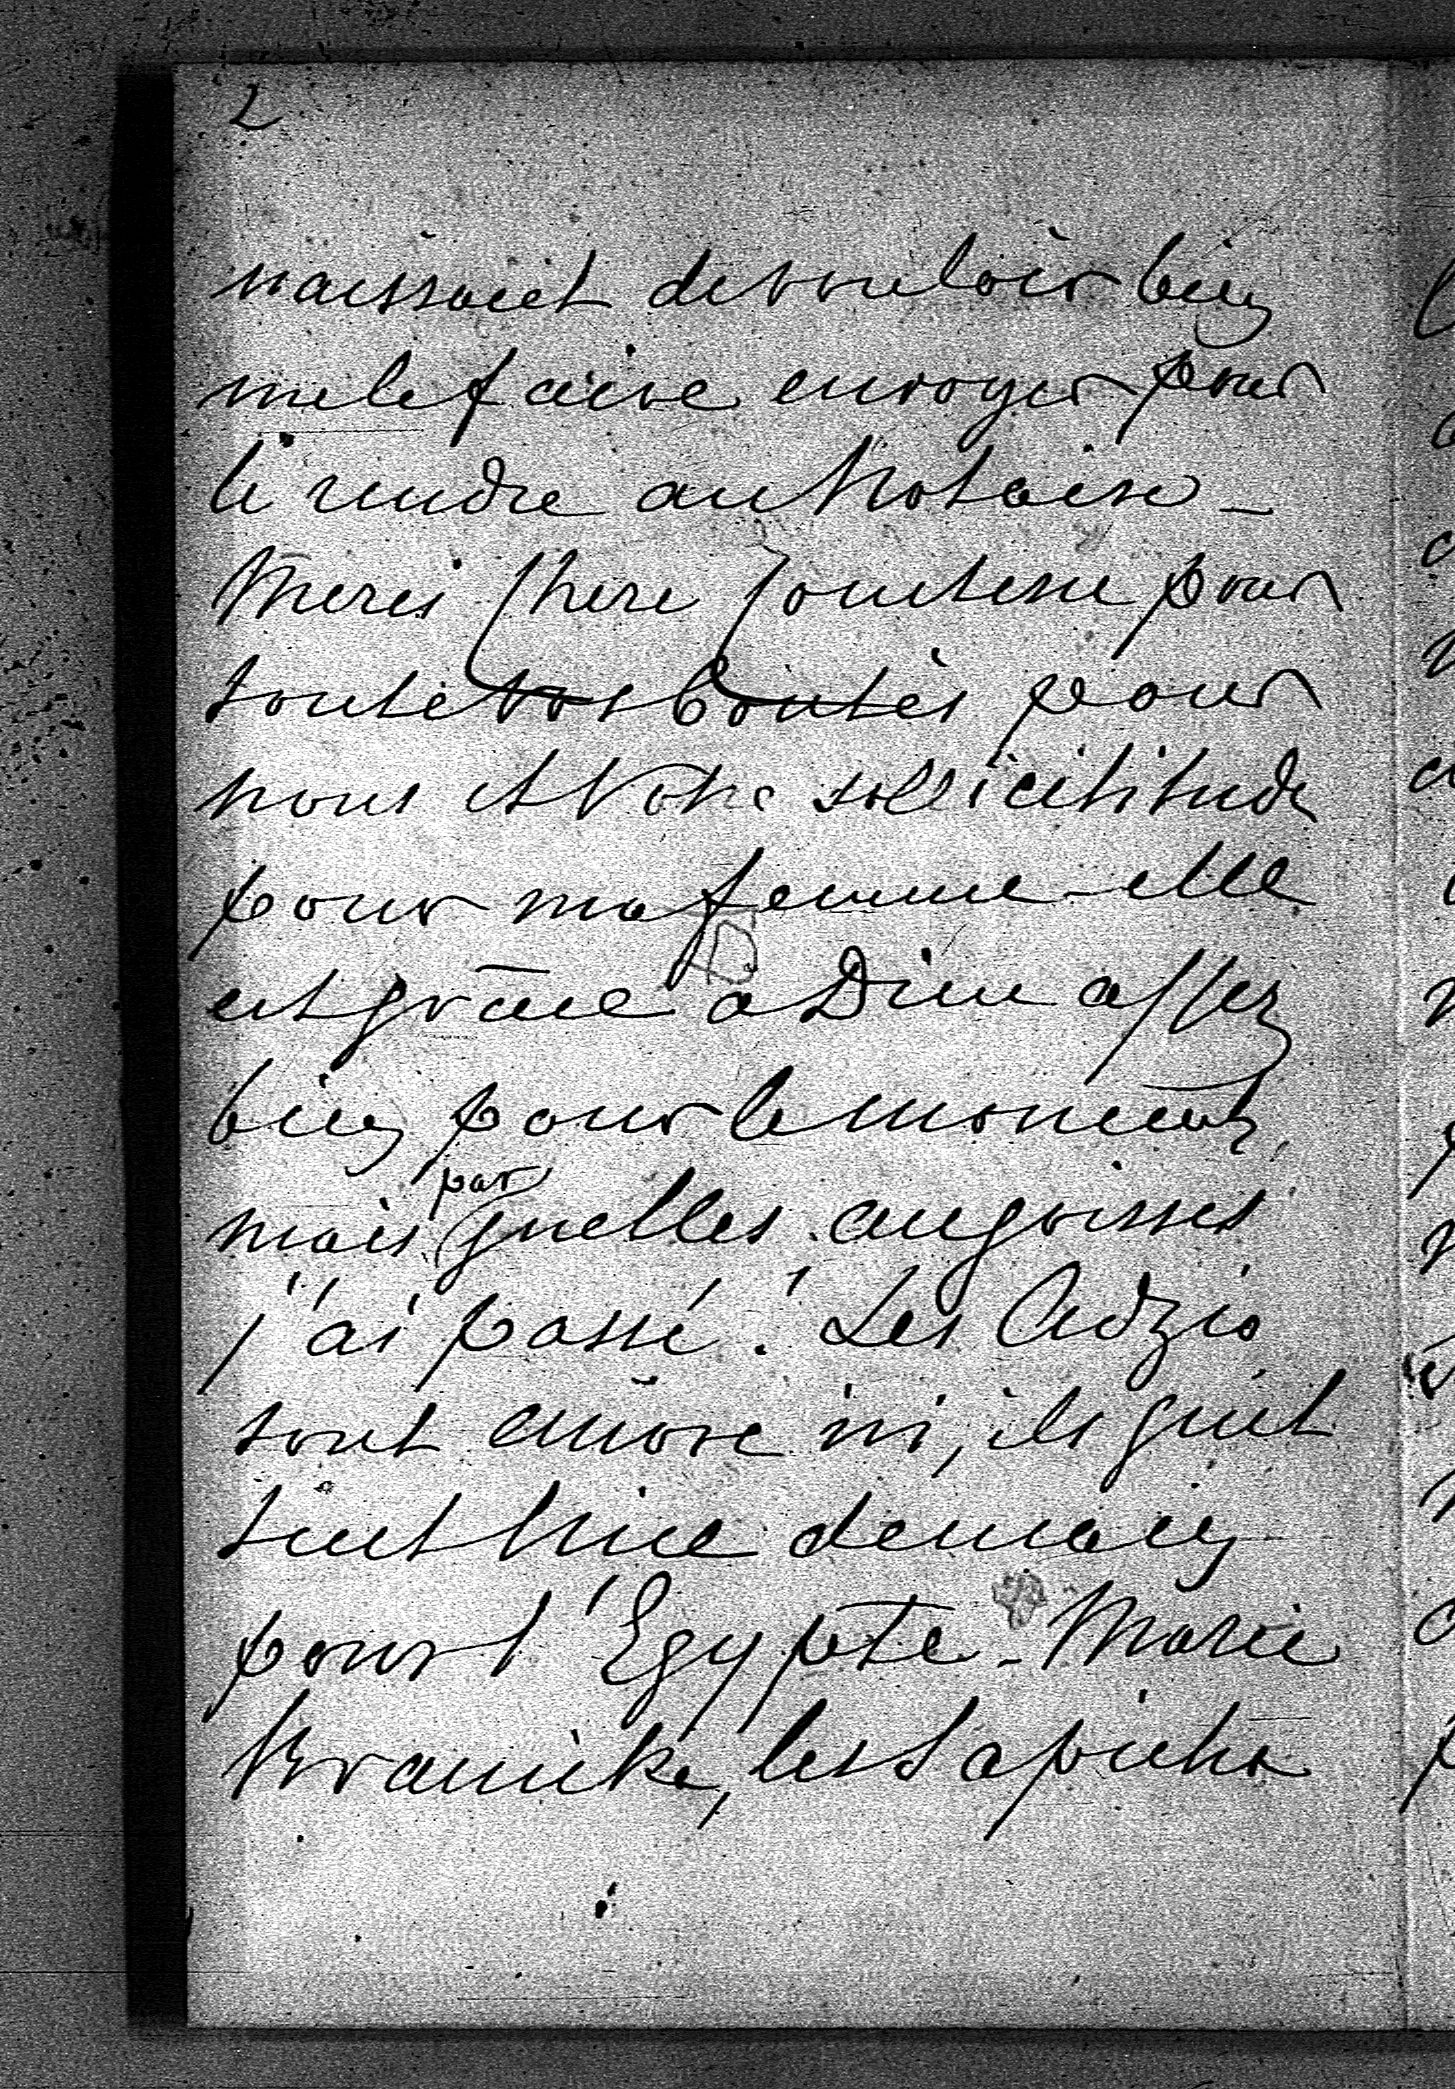 2
naissant de vouloir bien
me le faire envoyer pour
le rendre au Notaire _
Merci Chère Comtesse pour
toute vos bontés pour
nous et Votre sollicititude
pour ma femme – elle
est grâce à Dieu assez
bien pour le moment,
mais par quelles angoisses
j'ai passé! Les Adzio
sont encore ici, ils quit
tent Nice demain
pour l'Egypte – Marie
Branicka, les Sapieha